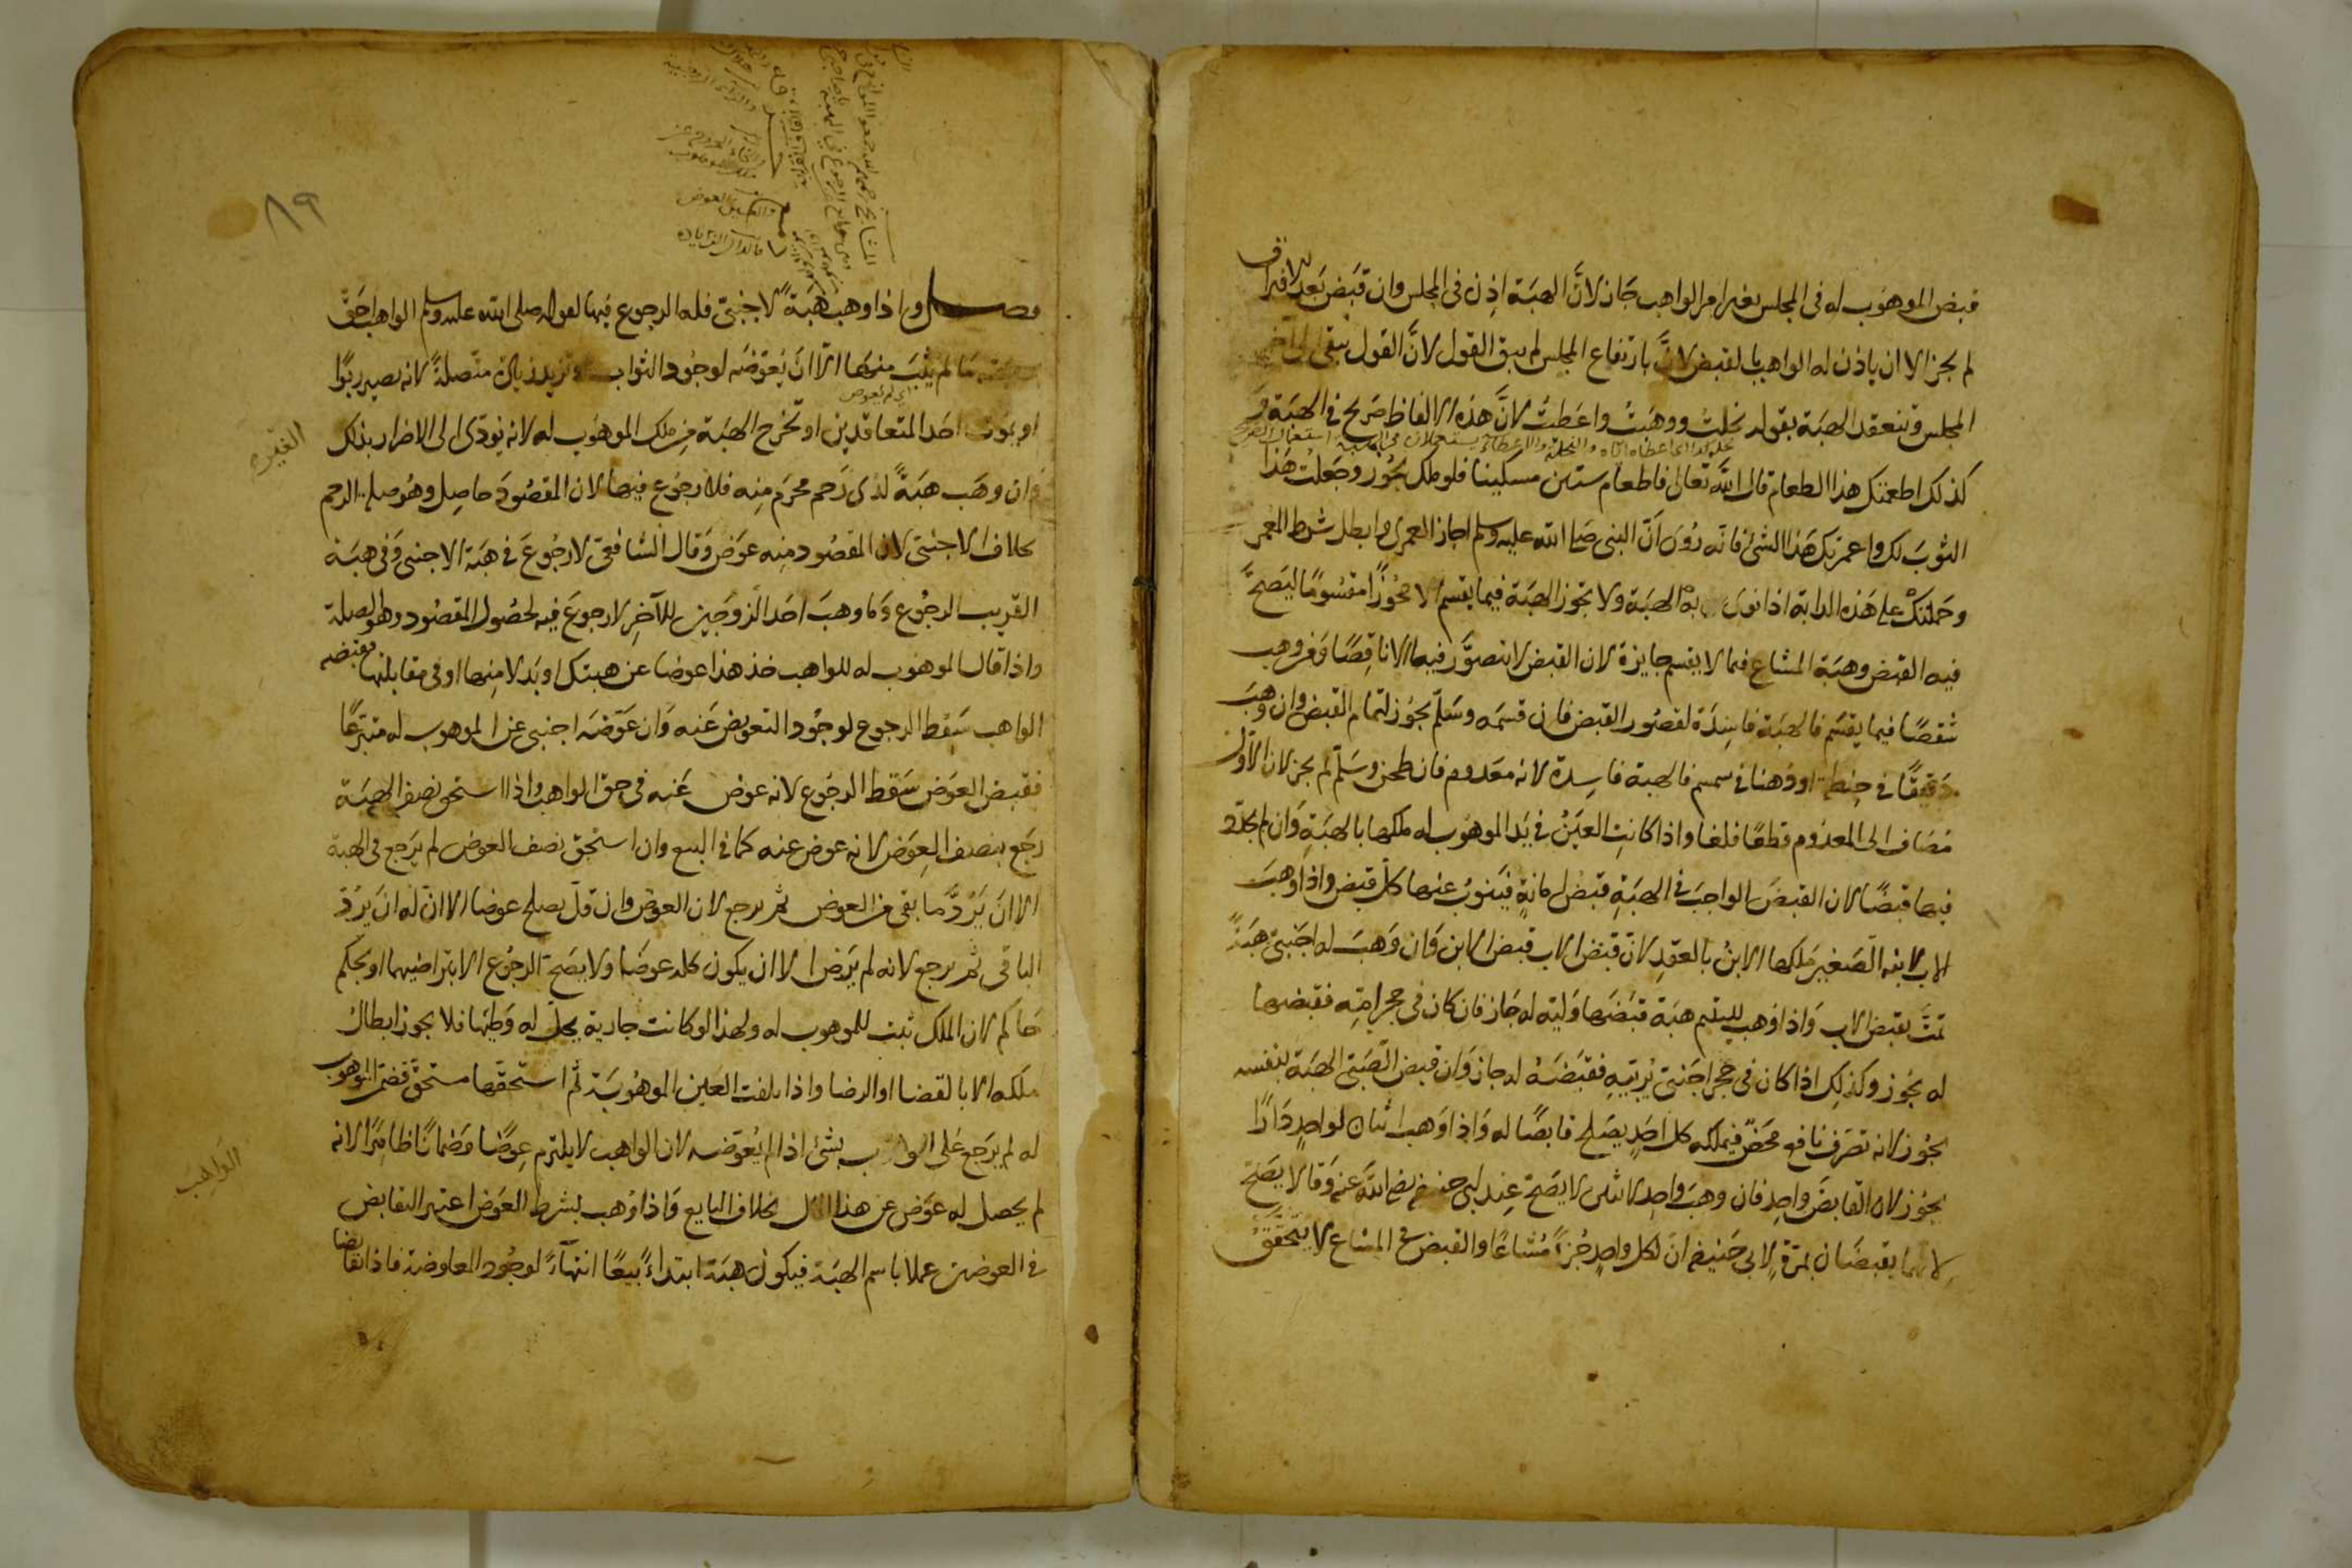 قبض الموهوب له في المجلس بغير امر الواهب جاز لانّ الهبة اذن في المجلس وان قبض بعد الافتراق
لم يجز الا ان ياذن له الواهب بالقبض لانّ بارتفاع المجلس لم يبق القول لانّ القول يبقى الى آخر
المجلس وتنعقد الهبة بقوله نحلتُ ووهبتُ واعطيتُ لانّ هذه الالفاظ صريح في الهبة و
كذلك اطعمتك هذا الطعام قال الله تعالى فاطعام ستين مسكينا فلو ملك يجوز وجعلت هذا
الثوب لك واعمرتك هذا الشئ فانه رُوى انّ النبى صلى الله عليه وسلم اجاز العمرى وابطل شرط المعمر
وحملتك على هذه الدابة اذا نوى به الهبة ولا تجوز الهبة فيما يقسم الا محوزًا مقسومًا ليصحّ
فيه القبض وهبة المشاع فيما لا يقسم جايزة لان القبض لا يتصوّر فيها الا ناقصًا ومن وهب
شقصًا فيما يقسم فالهبة فاسدة لقصور القبض فان قسمه وسلّم يجوز لتمام القبض وان وهب
دقيقًا في حنطة او دهنا في سمسم فالهبة فاسدة لانه معدوم فان طحن وسلّم لم يجز لان الاول
مضاف الى المعدوم قطعًا فلغا واذا كانت العين في يد الموهوب له ملكها بالهبة وان لم يجدّد
فيها قبضًا لان القبض الواجب في الهبة قبض امانة فينوب عنها كلّ قبض واذا وهب
الاب لابنه الصغير ملكها الابنُ بالعقد لانّ قبض الاب قبض الابن وان وهب له اجنبيّ هبةً
تمّت بقبض الاب واذا وهب لليتيم هبة قبضها وليّه له جاز فان كان في حجر امّه فقبضها
له يجوز وكذلك اذا كان في حجر اجنبيّ يربّيه فقبضه له جاز وان قبض الصّبيّ الهبة بنفسه
يجوز لانه تصرف نافع محض فيملكه كل احدٍ يصلح قابضًا له واذا وهب اثنان لواحدٍ دارًا
يجوز لان القابض واحد فان وهب واحد لاثنين لا يصحّ عند ابى حنيفة رضى الله عنه وقالا يصحّ
لانهما يقبضان بمرّةٍ لابى حنيفة انّ لكل واحدٍ جزأ مُشاعًا والقبض في المشاع لا يتحقّقُ
فصل واذا وهب هبةً لاجنبيّ فله الرجوع فيها لقوله صلى الله عليه وسلم الواهب احقّ
بهبته ما لم يُثَب منها الّا ان يُعوّضه لوجود الثواب او تزيد زيادة متّصلةً لانه يصير ربوًا
اى لم يعوض
او يموت احد المتعاقدين او تخرج الهبة من ملك الموهوب له لانه يؤدّى الى الاضرار بذلك
الغير
وان وهب هبةً لذى رحم محرم منه فلا رجوع فيها لان المقصود حاصل وهو صلة الرحم
بخلاف الاجنبى لان المقصود منه عوض وقال الشافعى لا رجوع في هبة الاجنبى وفى هبة
القريب الرجوع وما وهب احد الزوجين للآخر لا رجوع فيه لحصول المقصود وهو الصلة
واذا قال الموهوب له للواهب خذ هذا عوضا عن هبتك او بدلا منها او في مقابلتها فقبضه
الواهب سقط الرجوع لوجود التعويض عنه وان عوّضه اجنبى عن الموهوب له متبرعًا
فقبض العوض سقط الرجوع لانه عوض عنه في حق الواهب واذا استحق نصف الهبة
رجع بنصف العوض لانه عوض عنه كما في البيع وان استحق نصف العوض لم يرجع فى الهبة
الا ان يردّ ما بقى من العوض ثم يرجع لان العوض وان قلّ يصلح عوضا الا انّ له ان يردّ
الباقى ثم يرجع لانه لم يرض الا ان يكون كله عوضًا ولا يصحّ الرجوع الا بتراضيهما او بحكم
حاكم لان الملك ثبت للموهوب له ولهذا لو كانت جارية يحلّ له وطيها فلا يجوز ابطال
ملكه الا بالقضا او الرضا واذا تلفت العين الموهوبة ثم استحقّها مستحق فضمّن الموهوب
له لم يرجع على الواهب بشئ اذا لم يُعوّضه لان الواهب لا يلتزم عوضًا وضمانًا ظاهرًا لانه
الواهب
لم يحصل له عوض عن هذا بخلاف البايع واذا وهب بشرط العوض اعتبر التقابض
في العوضين عملا باسم الهبة فيكون هبة ابتداءً بيعًا انتهاءً لوجود المعاوضة فاذا تقابضا
٨٩